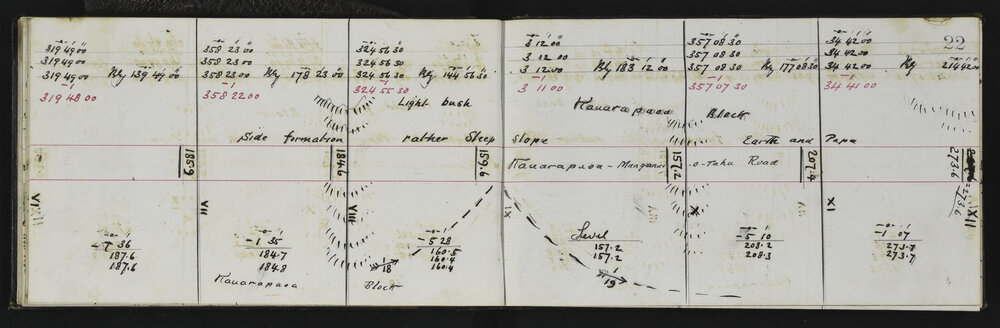 22
319 49 00
319 49 00
319 49 00 Bg 139 49 00
-1
319 48 00
358 23 00
358 23 00
358 23 00 Bg 178 23 00
-1
358 22 00
324 56 30
324 56 30
324 56 30 Bg 144 56 30
-1
324 55 30
3 12 00
3 12 00
3 12 00 Bg 183 12 00
-1
3 11 00
357 08 30
357 08 30
357 08 30 Bg 177 08 30
-1
357 07 30
34 42 00
34 42 00
34 42 00 Bg 214 42 00
-1
34 41 00
Light bush
Kauarapaoa Block
Side formation rather Steep Slope Earth and Papa
185.9 184.6 159.6 157.2 207.4 273.6
Kauarapaoa - Manganui-o-tahu Road
273.6
VI VII VIII IX X XI XII
36
187.6
187.6
-1 35
184.7
184.8
-5 28
160.5
160.4
160.4
Level
157.2
157.2
-5 10
208.2
208.3
-1 07
273.7
273.7
1/18
1/19
Kauarapaoa Block